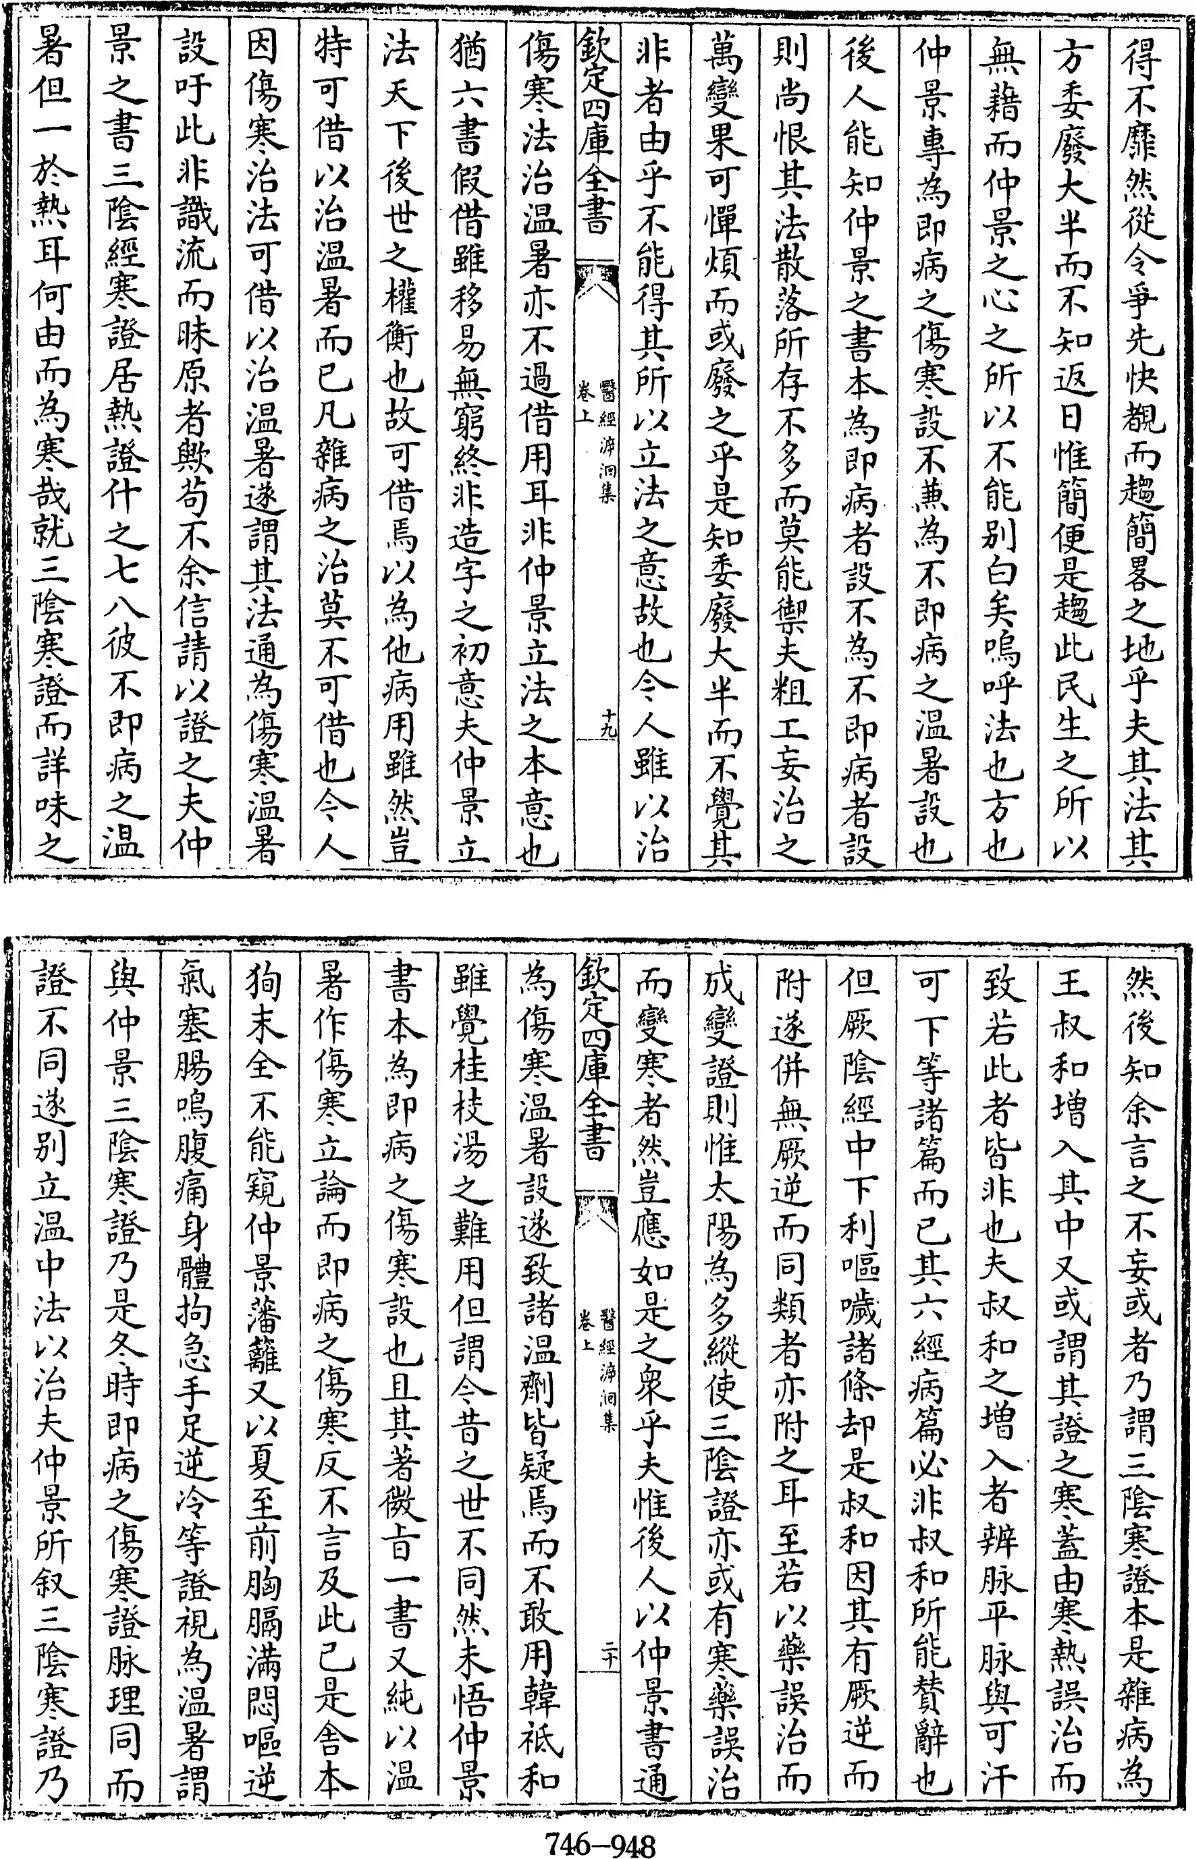 得不靡然從令爭先快覩而趨簡畧之地乎夫其法其
方委廢大半而不知返日惟簡便是趨此民生之所以
無藉而仲景之心之所以不能别白矣嗚呼法也方也
仲景專為即病之傷寒設不兼為不即病之温暑設也
後人能知仲景之書本為即病者設不為不即病者設
則尚恨其法散落所存不多而莫能禦夫粗工妄治之
萬變果可憚煩而或廢之乎是知委廢大半而不覺其
非者由乎不能得其所以立法之意故也今人雖以治
欽定四庫全書
醫經溯洄集
卷上
十九
傷寒法治温暑亦不過借用耳非仲景立法之本意也
猶六書假借雖移易無窮終非造字之初意夫仲景立
法天下後世之權衡也故可借焉以為他病用雖然豈
特可借以治温暑而已凡雜病之治莫不可借也今人
因傷寒治法可借以治温暑遂謂其法通為傷寒温暑
設吁此非識流而昧原者歟苟不余信請以證之夫仲
景之書三陰經寒證居熱證什之七八彼不即病之温
暑但一於熱耳何由而為寒哉就三陰寒證而詳味之
然後知余言之不妄或者乃謂三陰寒證本是雜病為
王叔和增入其中又或謂其證之寒蓋由寒熱誤治而
致若此者皆非也夫叔和之增入者辨脉平脉與可汗
可下等諸篇而已其六經病篇必非叔和所能贊辭也
但厥陰經中下利嘔噦諸條却是叔和因其有厥逆而
附遂併無厥逆而同類者亦附之耳至若以藥誤治而
成變證則惟太陽為多縱使三陰證亦或有寒藥誤治
而變寒者然豈應如是之衆乎夫惟後人以仲景書通
欽定四庫全書
醫經溯洄集
卷上
二十
為傷寒温暑設遂致諸温劑皆疑焉而不敢用韓祗和
雖覺桂枝湯之難用但謂今昔之世不同然未悟仲景
書本為即病之傷寒設也且其著微㫖一書又純以温
暑作傷寒立論而即病之傷寒反不言及此已是舍本
狥末全不能窺仲景藩籬又以夏至前胸膈滿悶嘔逆
氣塞腸鳴腹痛身體拘急手足逆冷等證視為温暑謂
與仲景三陰寒證脉理同而
證不同遂别立温中法以治夫仲景所叙三陰寒證乃
是冬時即病之傷寒證
746-948